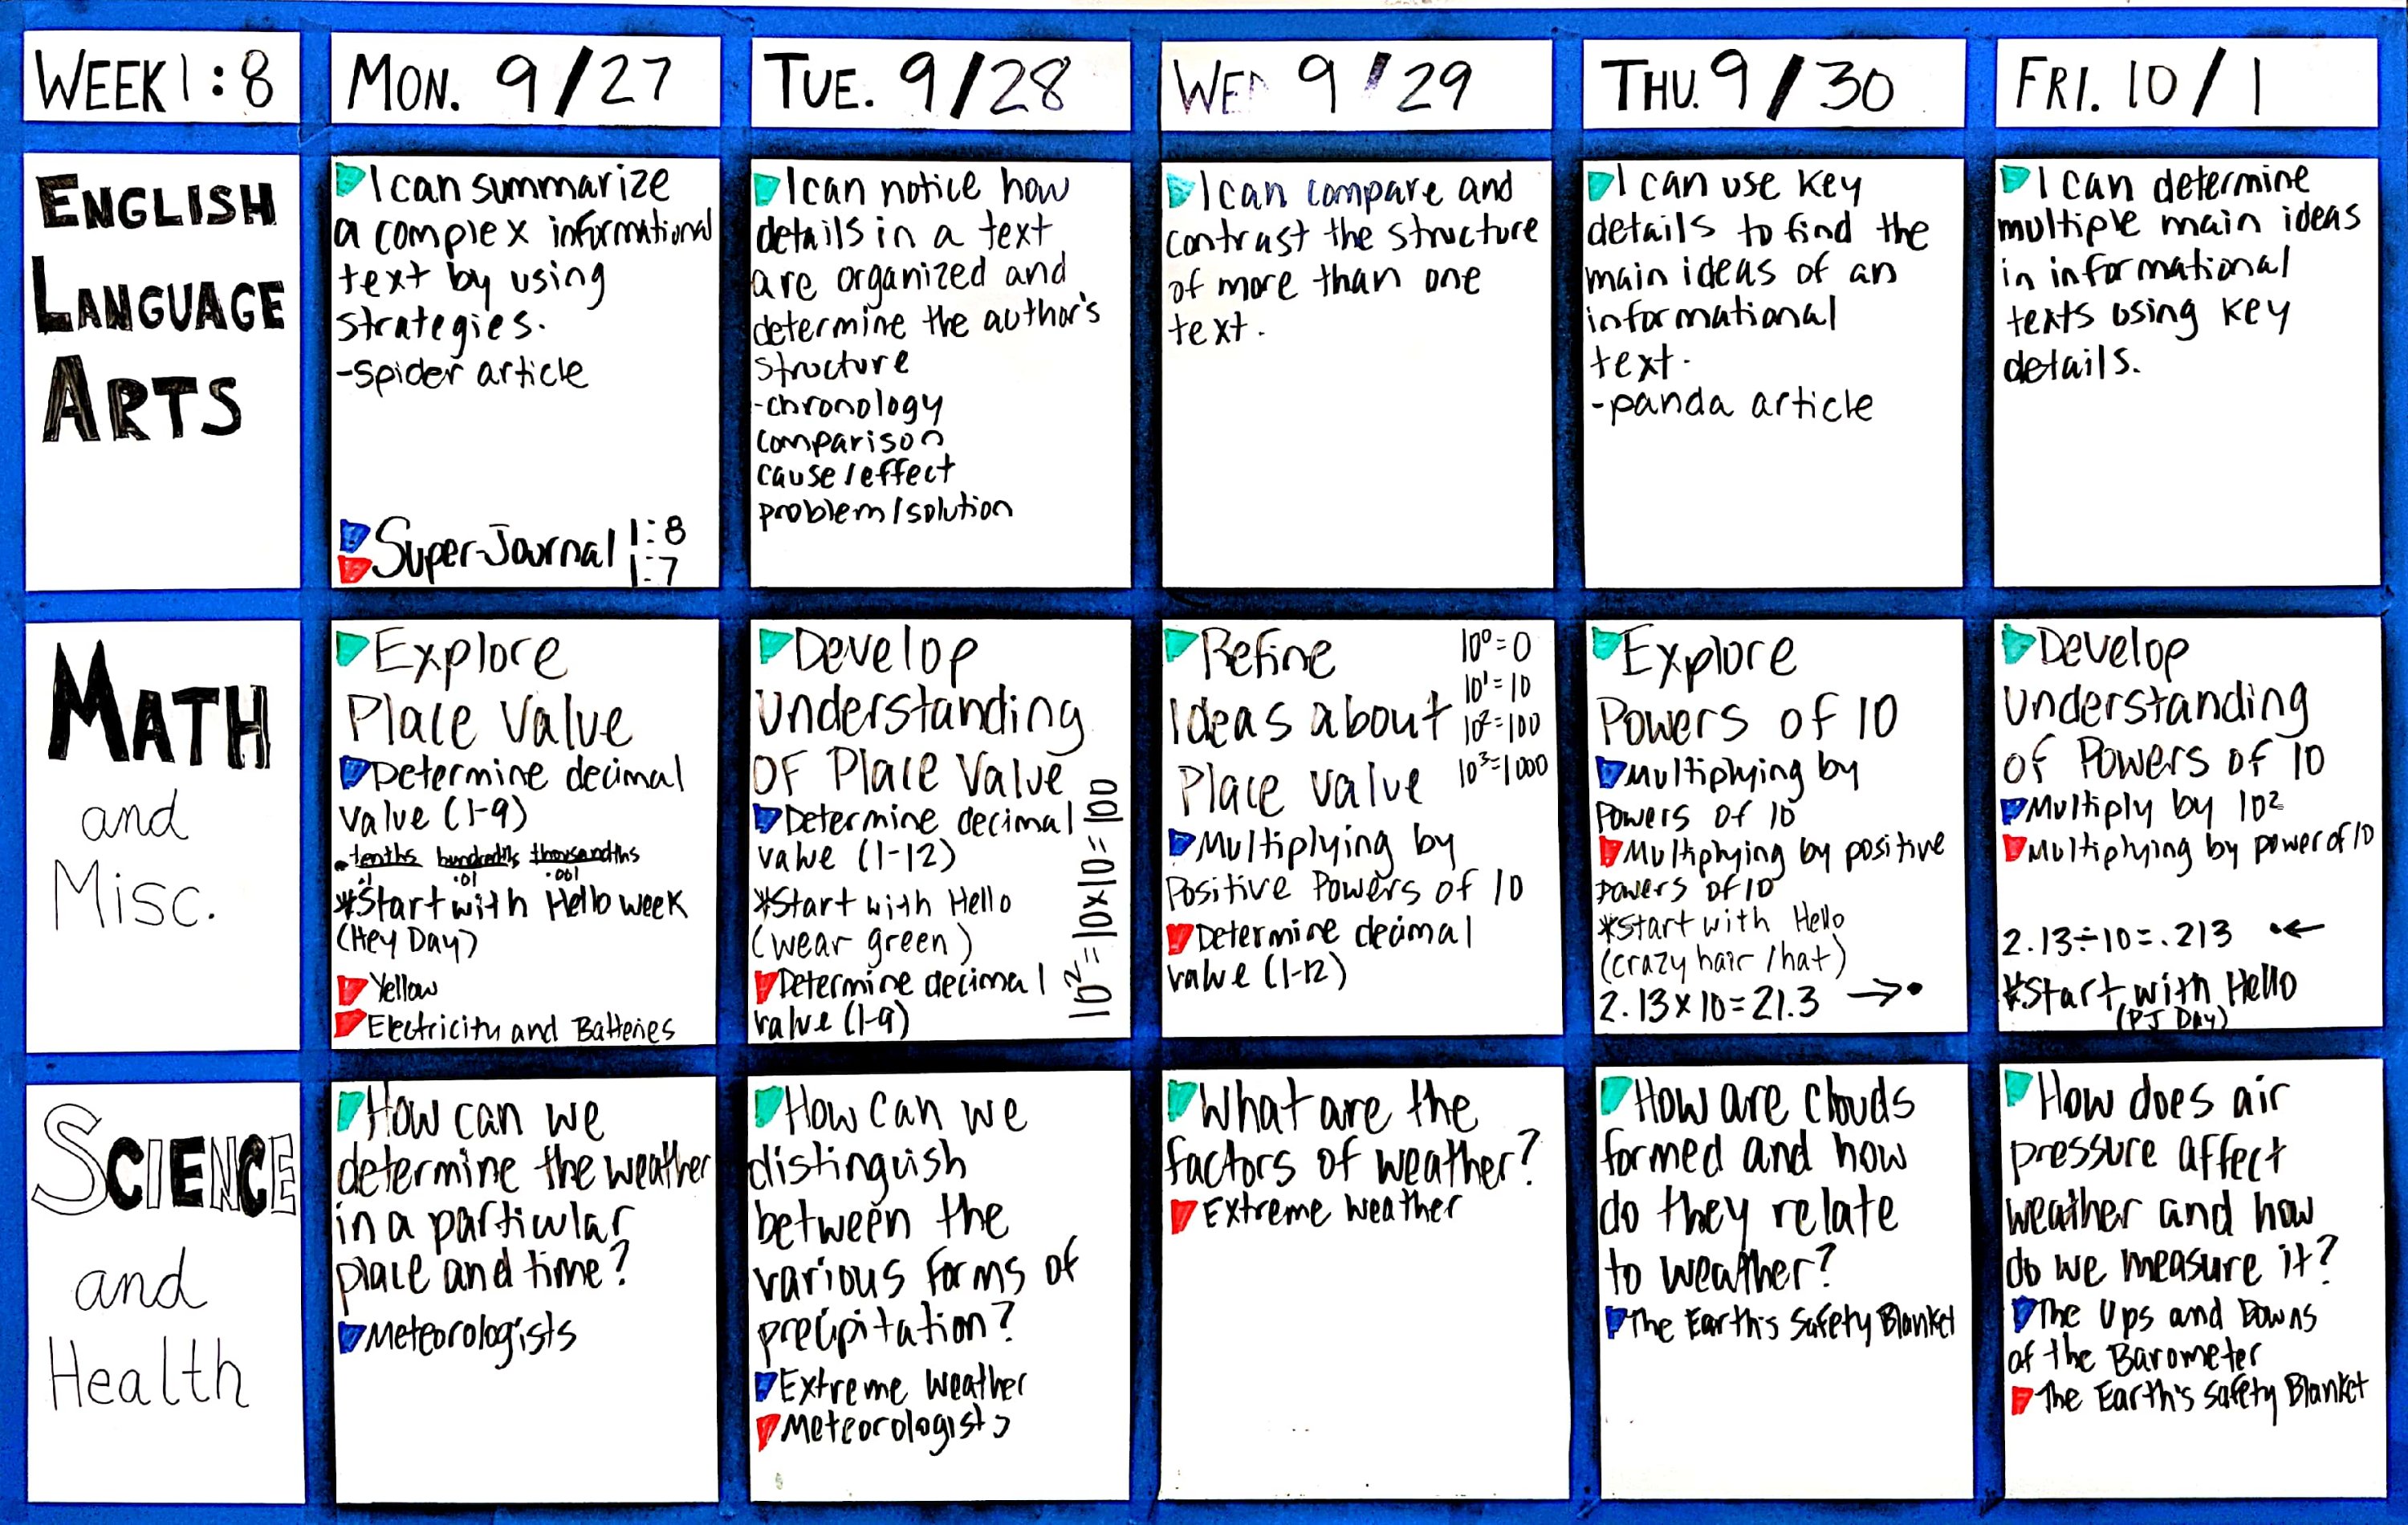 WEEK 1:8
MON. 9/27
TUE. 9/28
WED 9/29
THU. 9/30
FRI. 10/1
ENGLISH
LANGUAGE
ARTS
I can summarize
a complex informational
text by using
strategies.
-spider article
Super-Journal 1:8
1:7
I can notice how
details in a text
are organized and
determine the author's
structure
-chronology
comparison
cause/effect
problem/solution
I can compare and
contrast the structure
of more than one
text.
I can use key
details to find the
main ideas of an
informational
text.
-panda article
I can determine
multiple main ideas
in informational
texts using key
details.
MATH
and
Misc.
Explore
Place Value
Determine decimal
value (1-9)
.tenths hundredths thousandths
.1 .01 .001
*Start with Hello week
(Hey Day)
Yellow
Electricity and Batteries
Develop
Understanding
OF Place Value
Determine decimal
value (1-12)
*Start with Hello
(wear green)
Determine decimal
value (1-9)
10²=10x10=100
Refine
Ideas about
Place value
10⁰=0
10¹=10
10²=100
10³=1000
Multiplying by
Positive Powers of 10
Determine decimal
value (1-12)
Explore
Powers of 10
Multiplying by
Powers of 10
Multiplying by positive
powers of 10
*Start with Hello
(crazy hair/hat)
2.13x10=21.3 →•
Develop
understanding
of Powers of 10
Multiply by 10²
Multiplying by power of 10
2.13÷10=.213 •←
*Start with Hello
(PJ Day)
SCIENCE
and
Health
How can we
determine the weather
in a particular
place and time?
Meteorologists
How can we
distinguish
between the
various forms of
precipitation?
Extreme Weather
Meteorologists
What are the
factors of weather?
Extreme Weather
How are clouds
formed and how
do they relate
to weather?
The Earth's Safety Blanket
How does air
pressure affect
weather and how
do we measure it?
The Ups and Downs
of the Barometer
The Earth's Safety Blanket